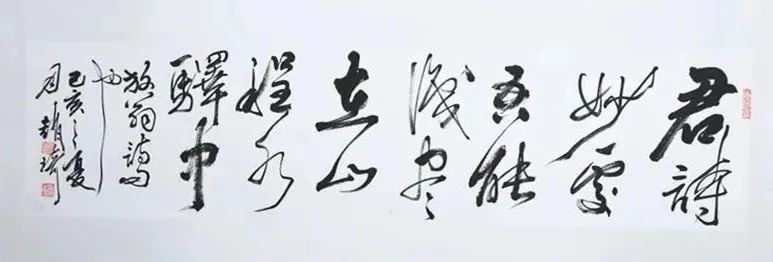 君詩
妙處
吾能
識盡
在山
程水
驛中
放翁詩句
也
己亥之夏
月